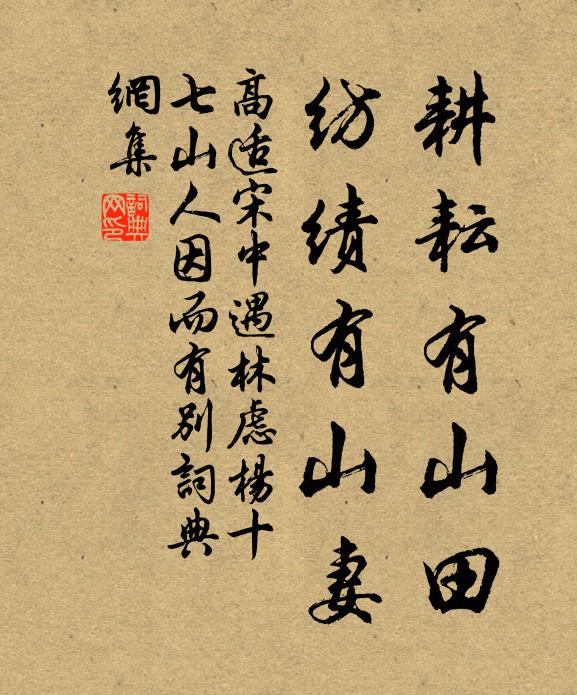 耕耘有山田
纺绩有山妻
高适宋中遇林虑杨十
七山人因而有别詞典
網集
詞典
网印